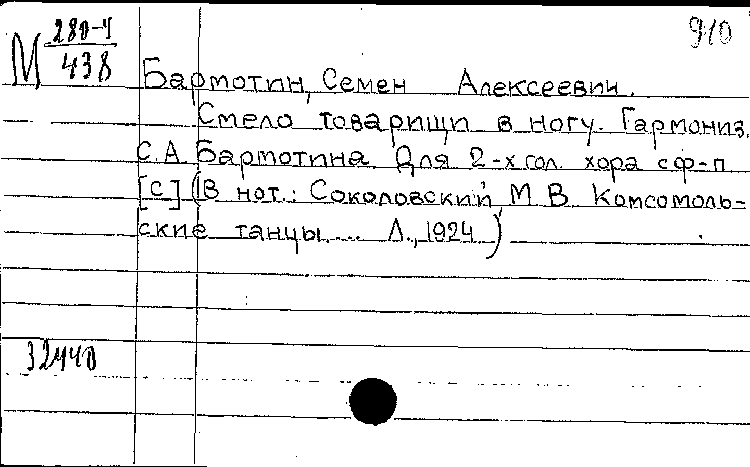 910
М 280-4
438
Бармотин, Семен Алексеевич.
Смело товарищи в ногу. Гармониз.
С.А. Бармотина. Для 2-х гол. хора с ф-п
[с] (В нот.: Соколовский, М В Комсомоль-
ские танцы.... Л., 1924)
32440